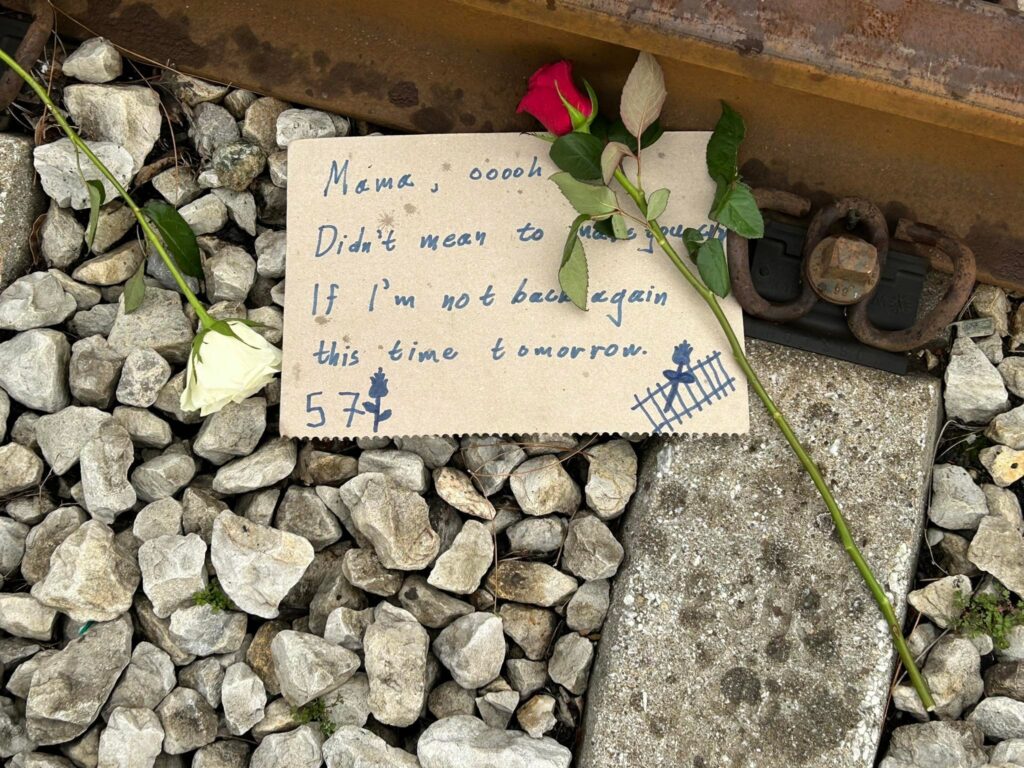 Mama, ooooh
Didn't mean to make you
If I'm not back again
this time tomorrow.
57